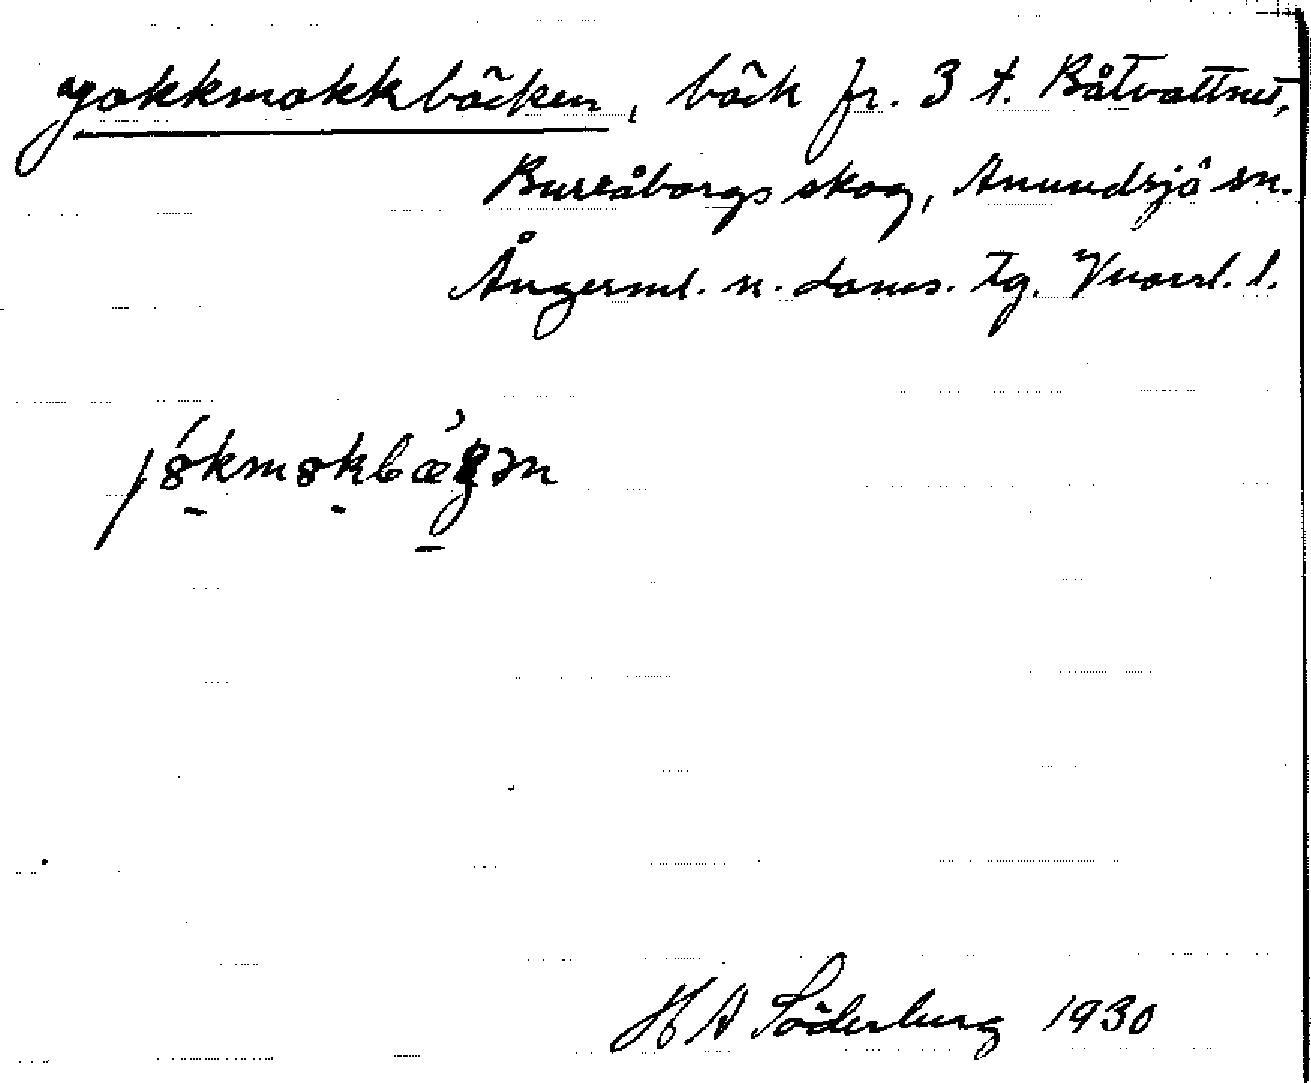 Jokkmokkbäcken, bäck fr. 3 t. Båtvattnet,
Bureåborgs skog, Anundsjö sn.
Ångerml. n. doms. tg. Vnorrl. l.
jókmokbæ̀gən
H A Söderberg 1930